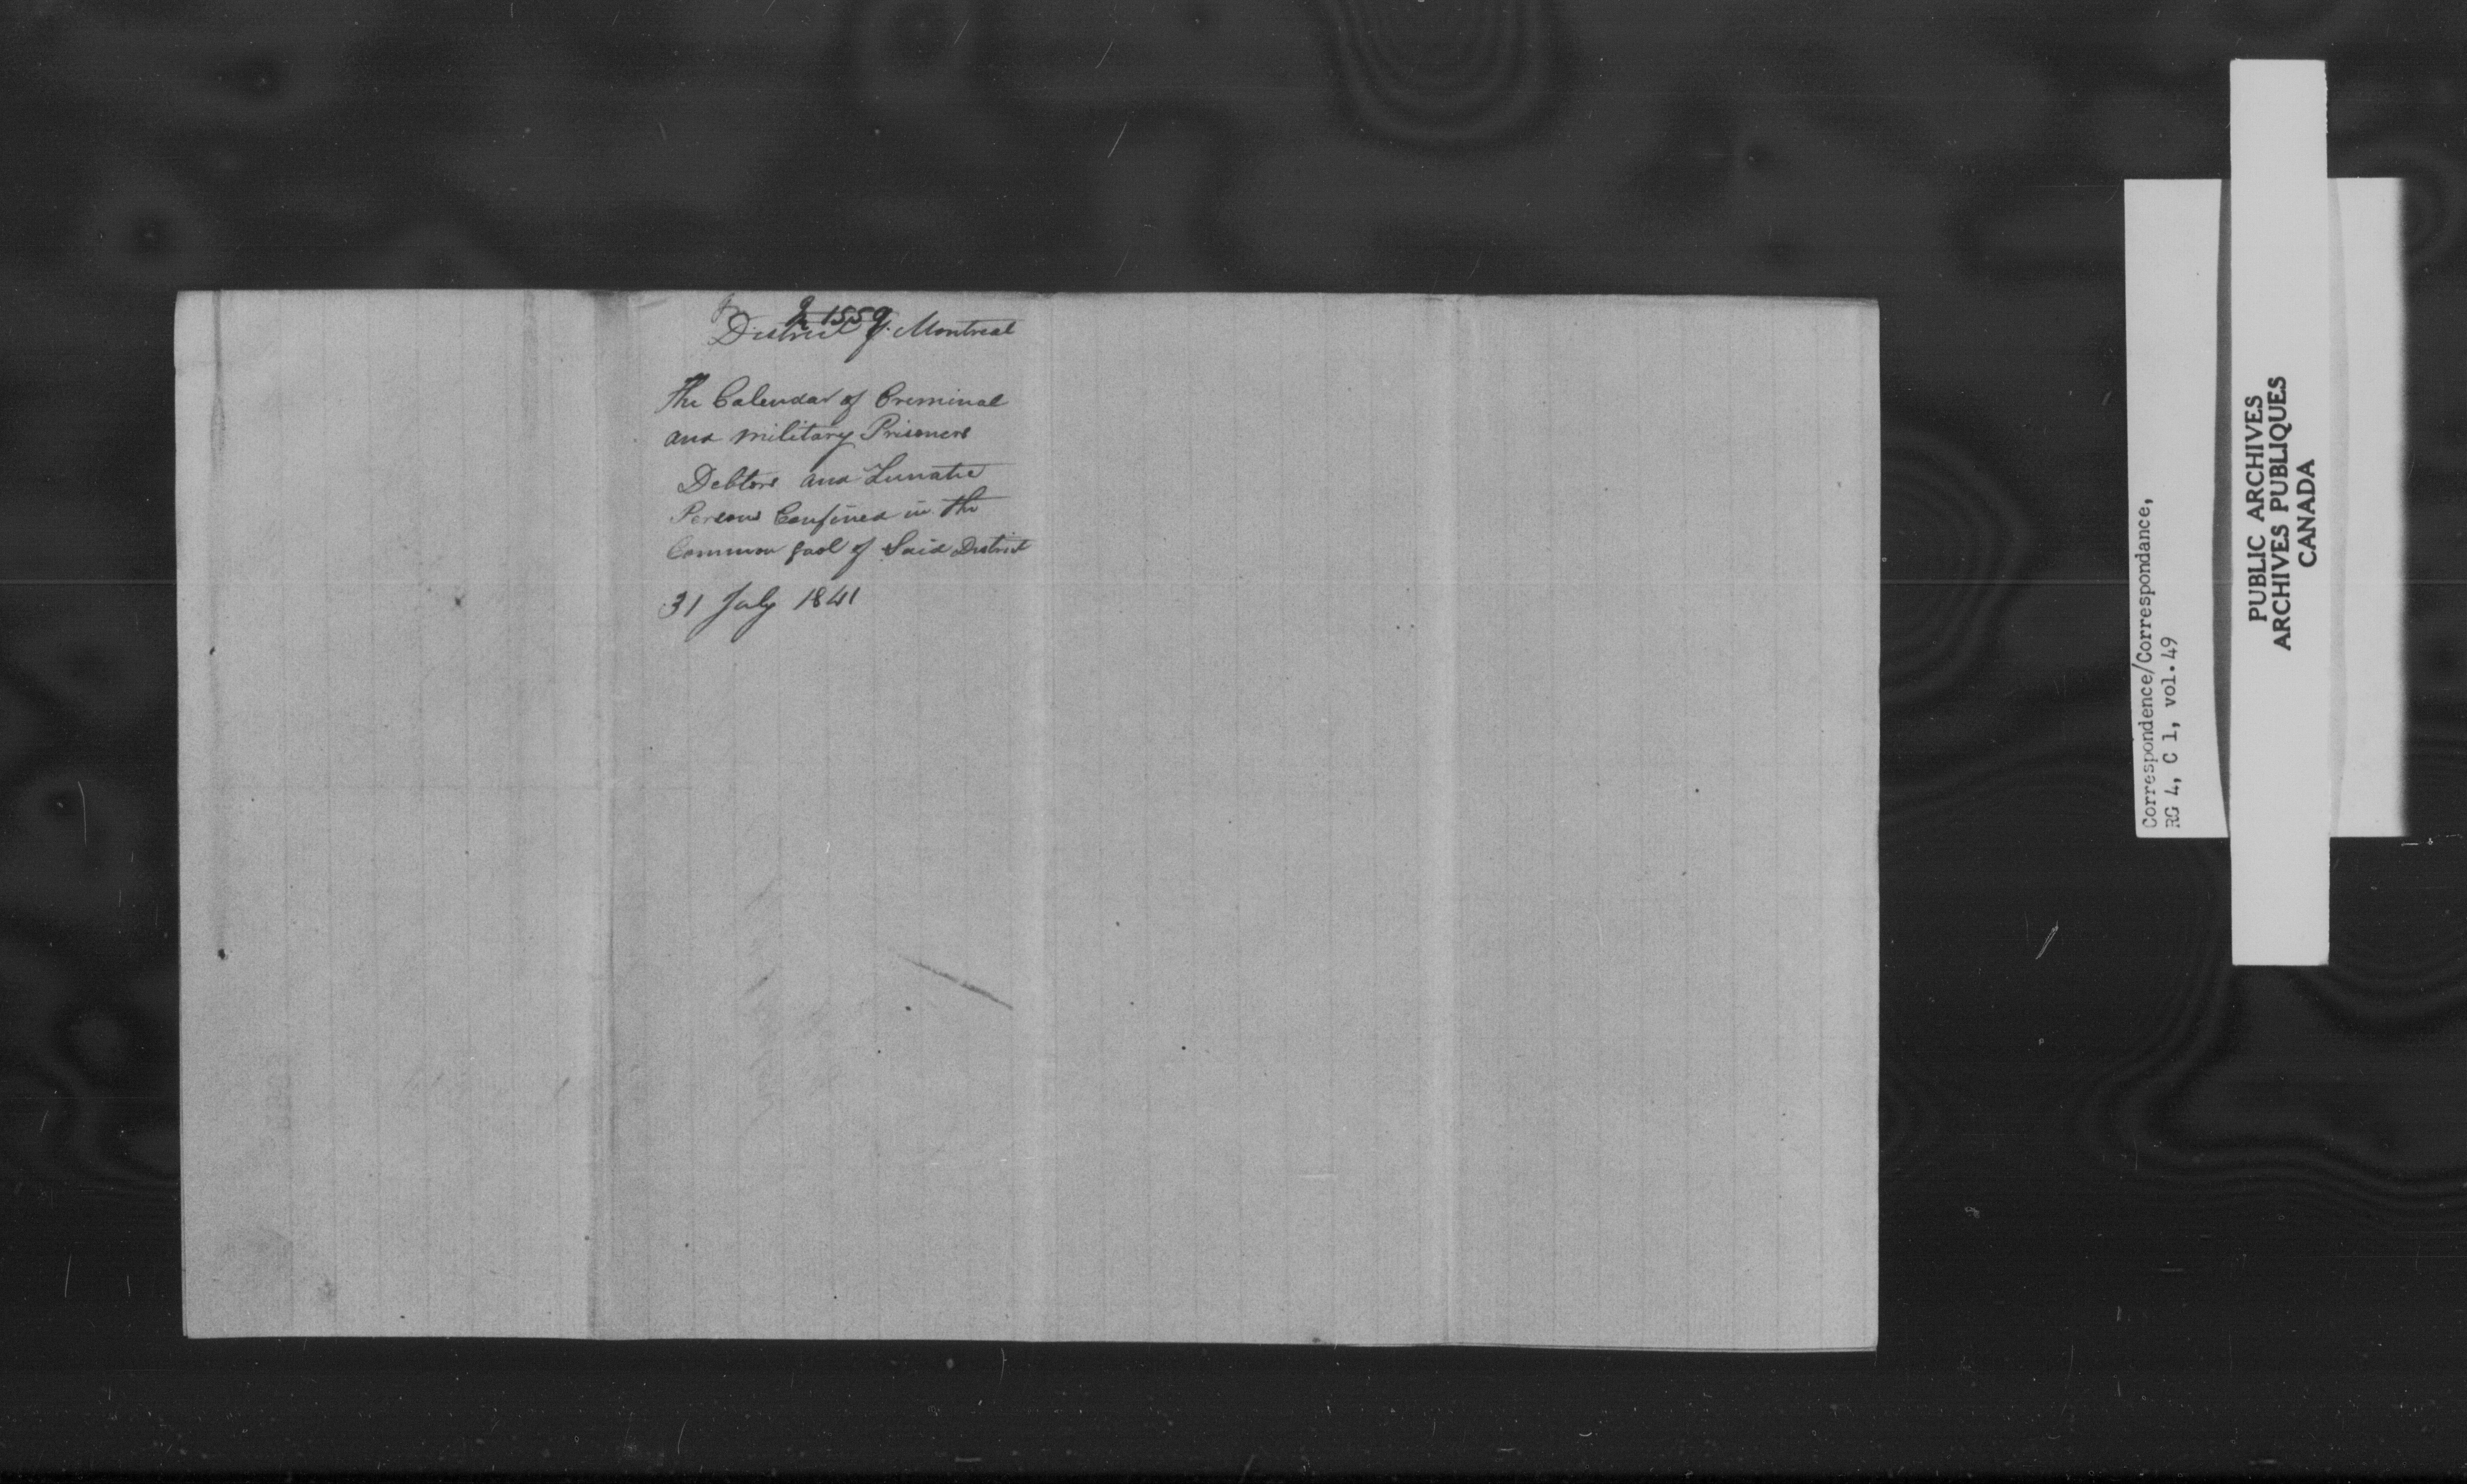 1559
District of Montreal
The Calendar of Creminal
and military Prisoners
Debtors and Lunatic
Persons Confined in the
Common gaol of Said District
31 July 1841
Correspondence/Correspondance,
RG 4, C 1, vol. 49
PUBLIC ARCHIVES
ARCHIVES PUBLIQUES
CANADA